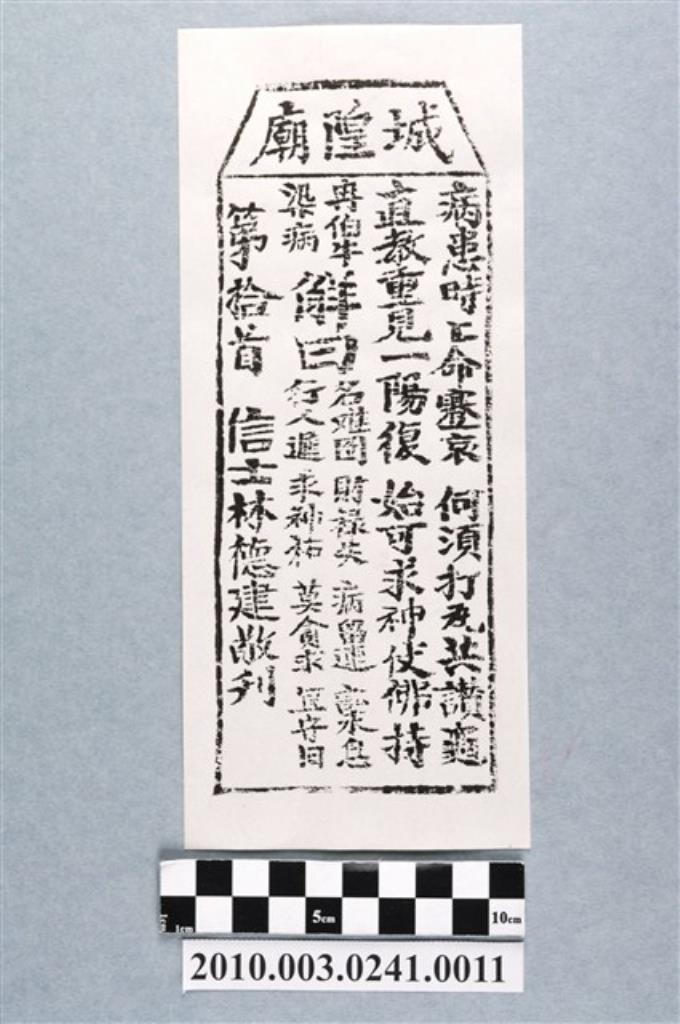 城隍廟
病患時正命蹇衰 何須打瓦共讚龜
直教重見一陽復 始可求神仗佛持
冉伯牛
染病
解曰
名難圖 財祿失 病留連 訟未息
行人遲 求神祐 莫貪求 宜守旧
第拾首 信士林德建敬刋
5cm
10cm
1cm
2010.003.0241.0011